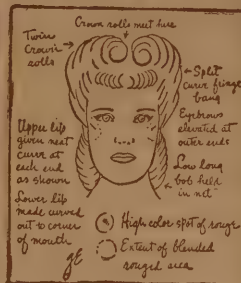 Crown rolls meet here
Twin
Crown
rolls
Split
curer fringe
bang
Eyebrows
elevated at
outer ends
Upper lip
given neat
curer at
each end
as shown
Low long
bob held
in net
Lower lip
made curved
out to corner
of mouth
High color spot of rouge
Extent of blended
rouged area